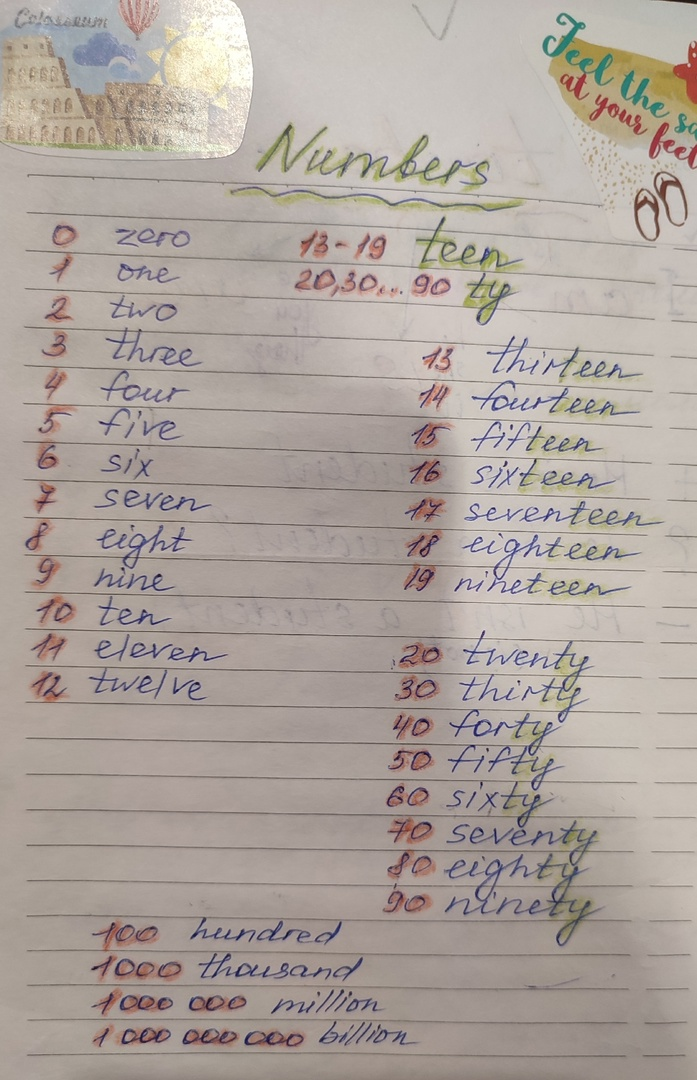 Colosseum
Feel the
at your feet
Numbers
0 zero
1 one
2 two
3 three
4 four
5 five
6 six
7 seven
8 eight
9 nine
10 ten
11 eleven
12 twelve
13-19 teen
20,30...90 ty
13 thirteen
14 fourteen
15 fifteen
16 sixteen
17 seventeen
18 eighteen
19 nineteen
20 twenty
30 thirty
40 forty
50 fifty
60 sixty
70 seventy
80 eighty
90 ninety
100 hundred
1000 thousand
1000 000 million
1 000 000 000 billion